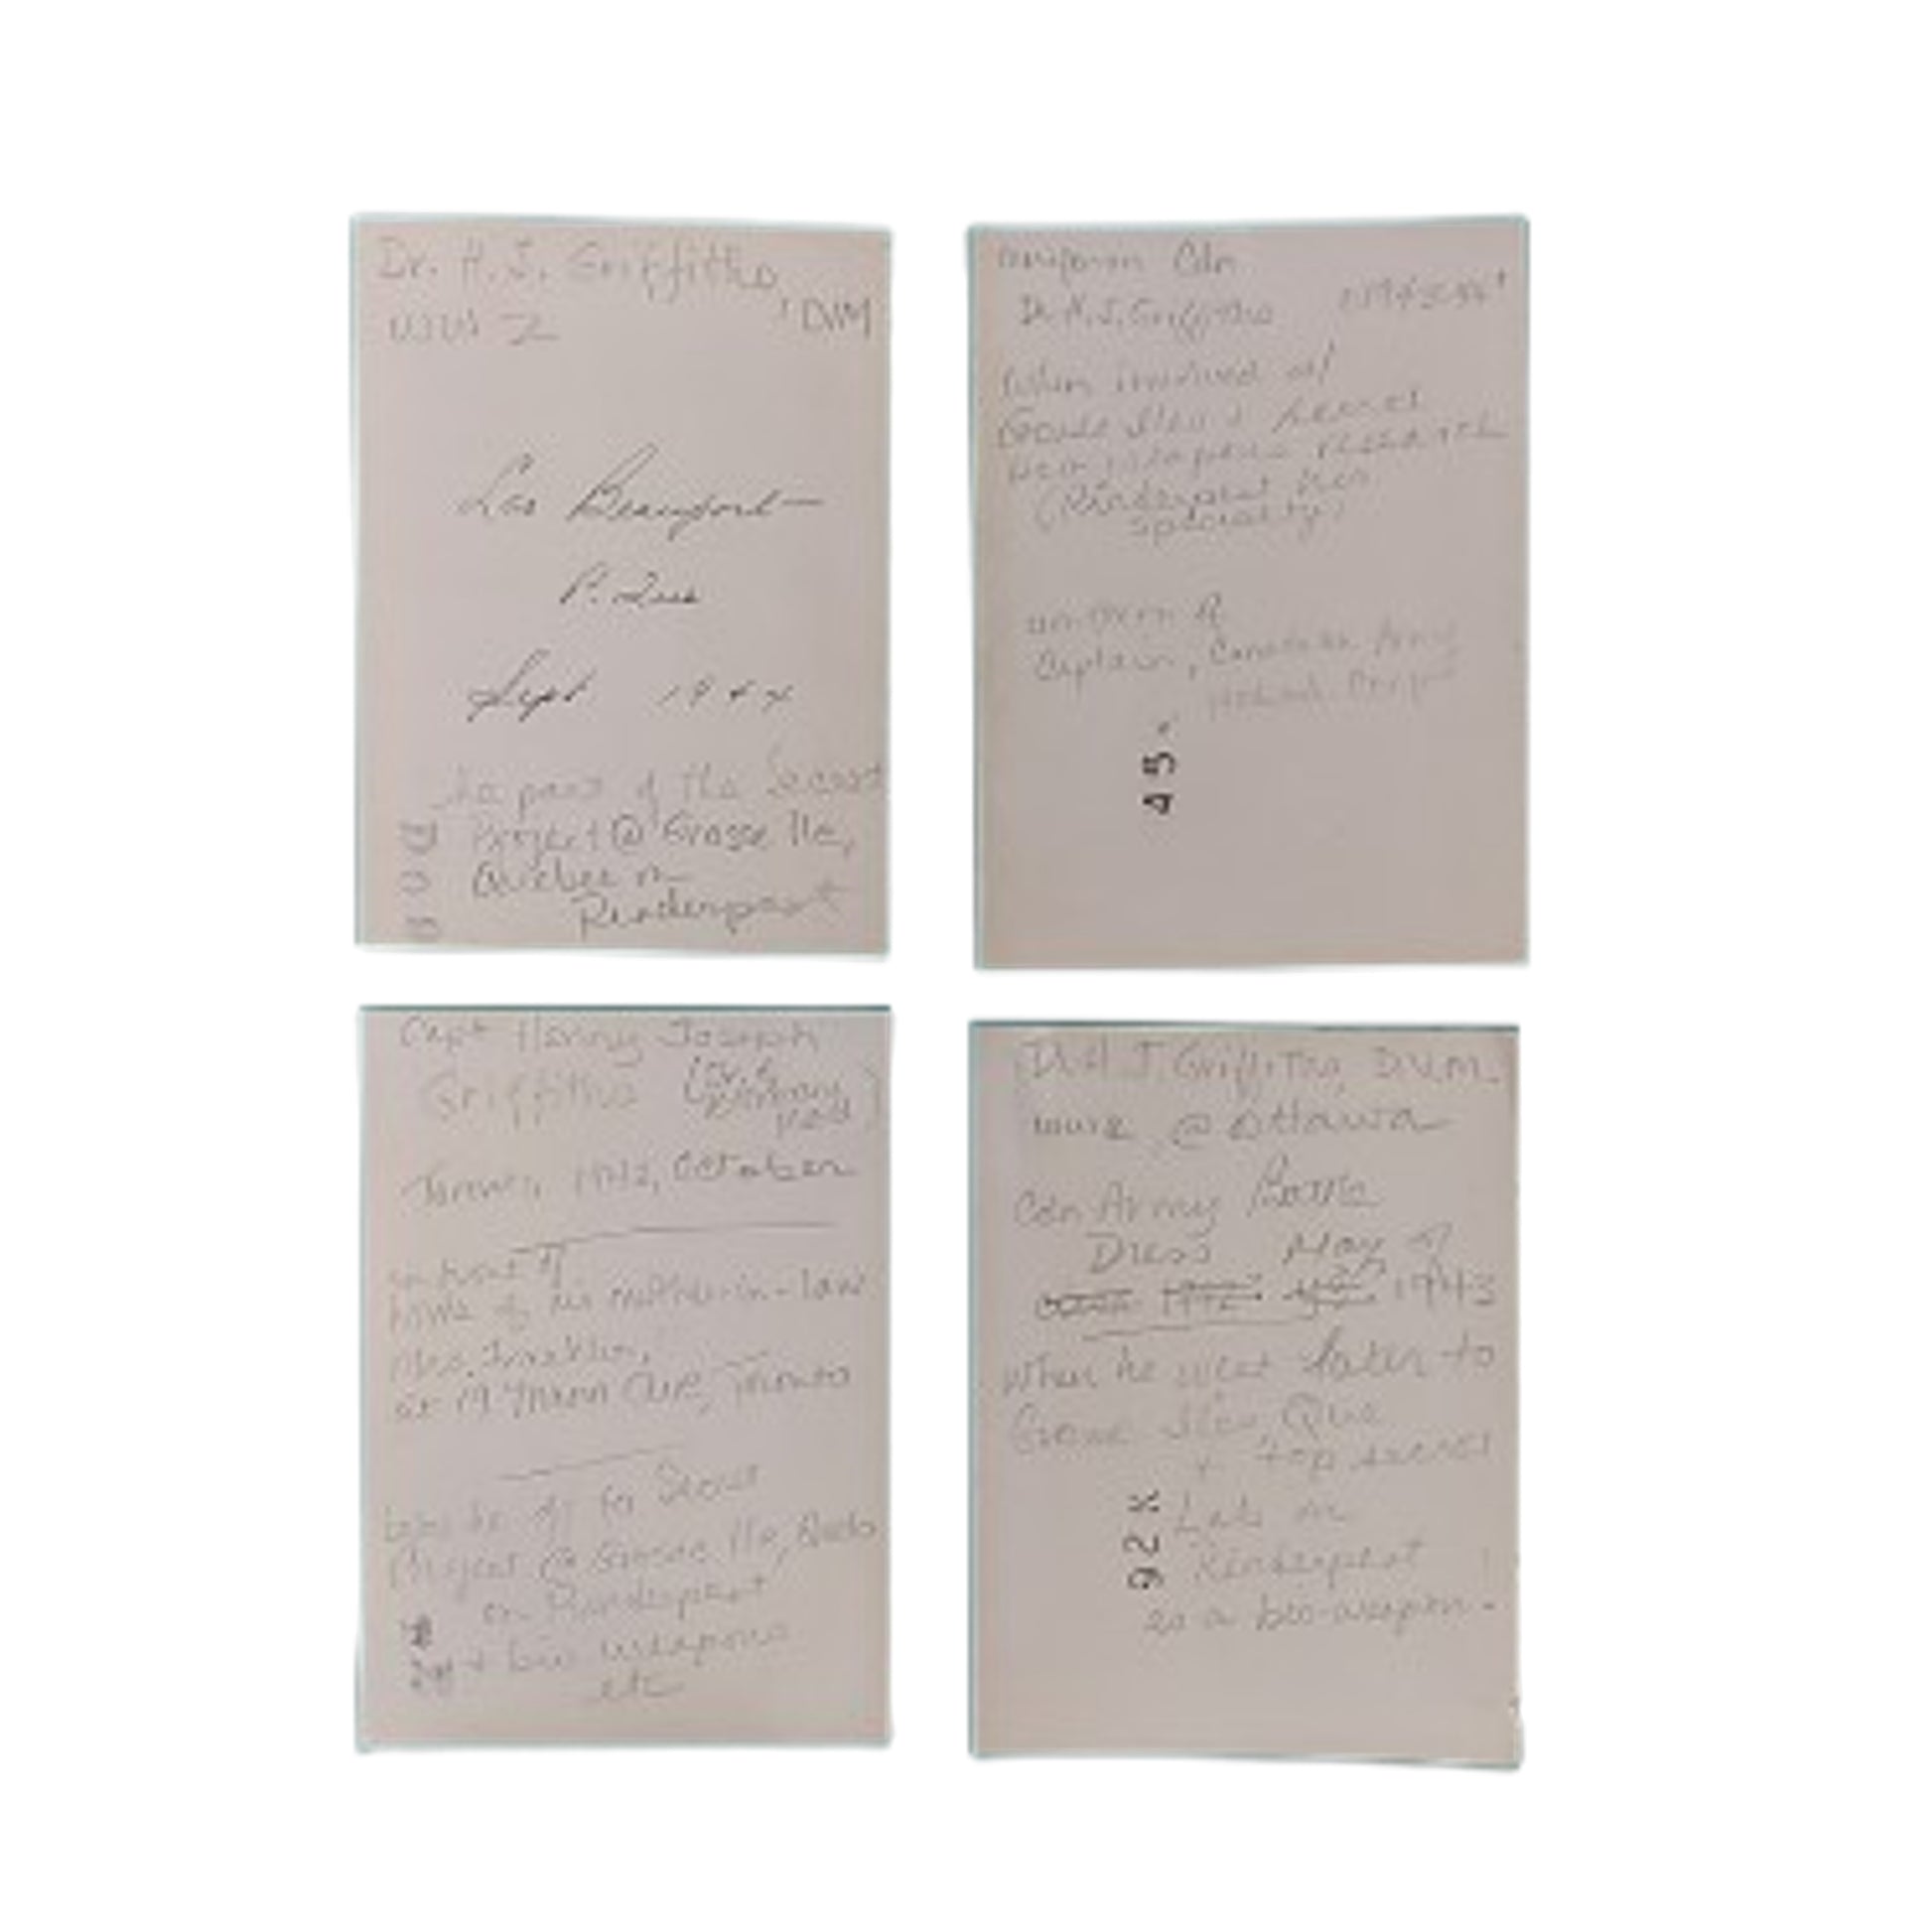 Dr. H. J. Griffiths
, DVM
WW 2
Lac Beauport
P. Que
Sept 1944
as part of the Secret
Project @ Grosse Ile,
Quebec on
Rinderpest
uniform Cdn
Dr. H. J. Griffiths
When involved w/
Grosse Ile + secret
research
(Rinderpest his
speciality)
uniform of
Captain, Canadian Army
45
Capt Henry Joseph
Griffiths
Toronto, 1942, October
in front of
home of his mother-in-law
Mrs.
at 19 Mann Ave, Toronto
for Secret
Project @ Grosse Ile,
on Rinderpest
+ bio weapons
etc
Dr. H J Griffiths, D.V.M.
@ Ottawa
Cdn Army Battle
Dress May
1942 1943
When he went later to
Grosse Ile, Que
+ top secret
Lab on
Rinderpest
as a bio-weapon.
92X